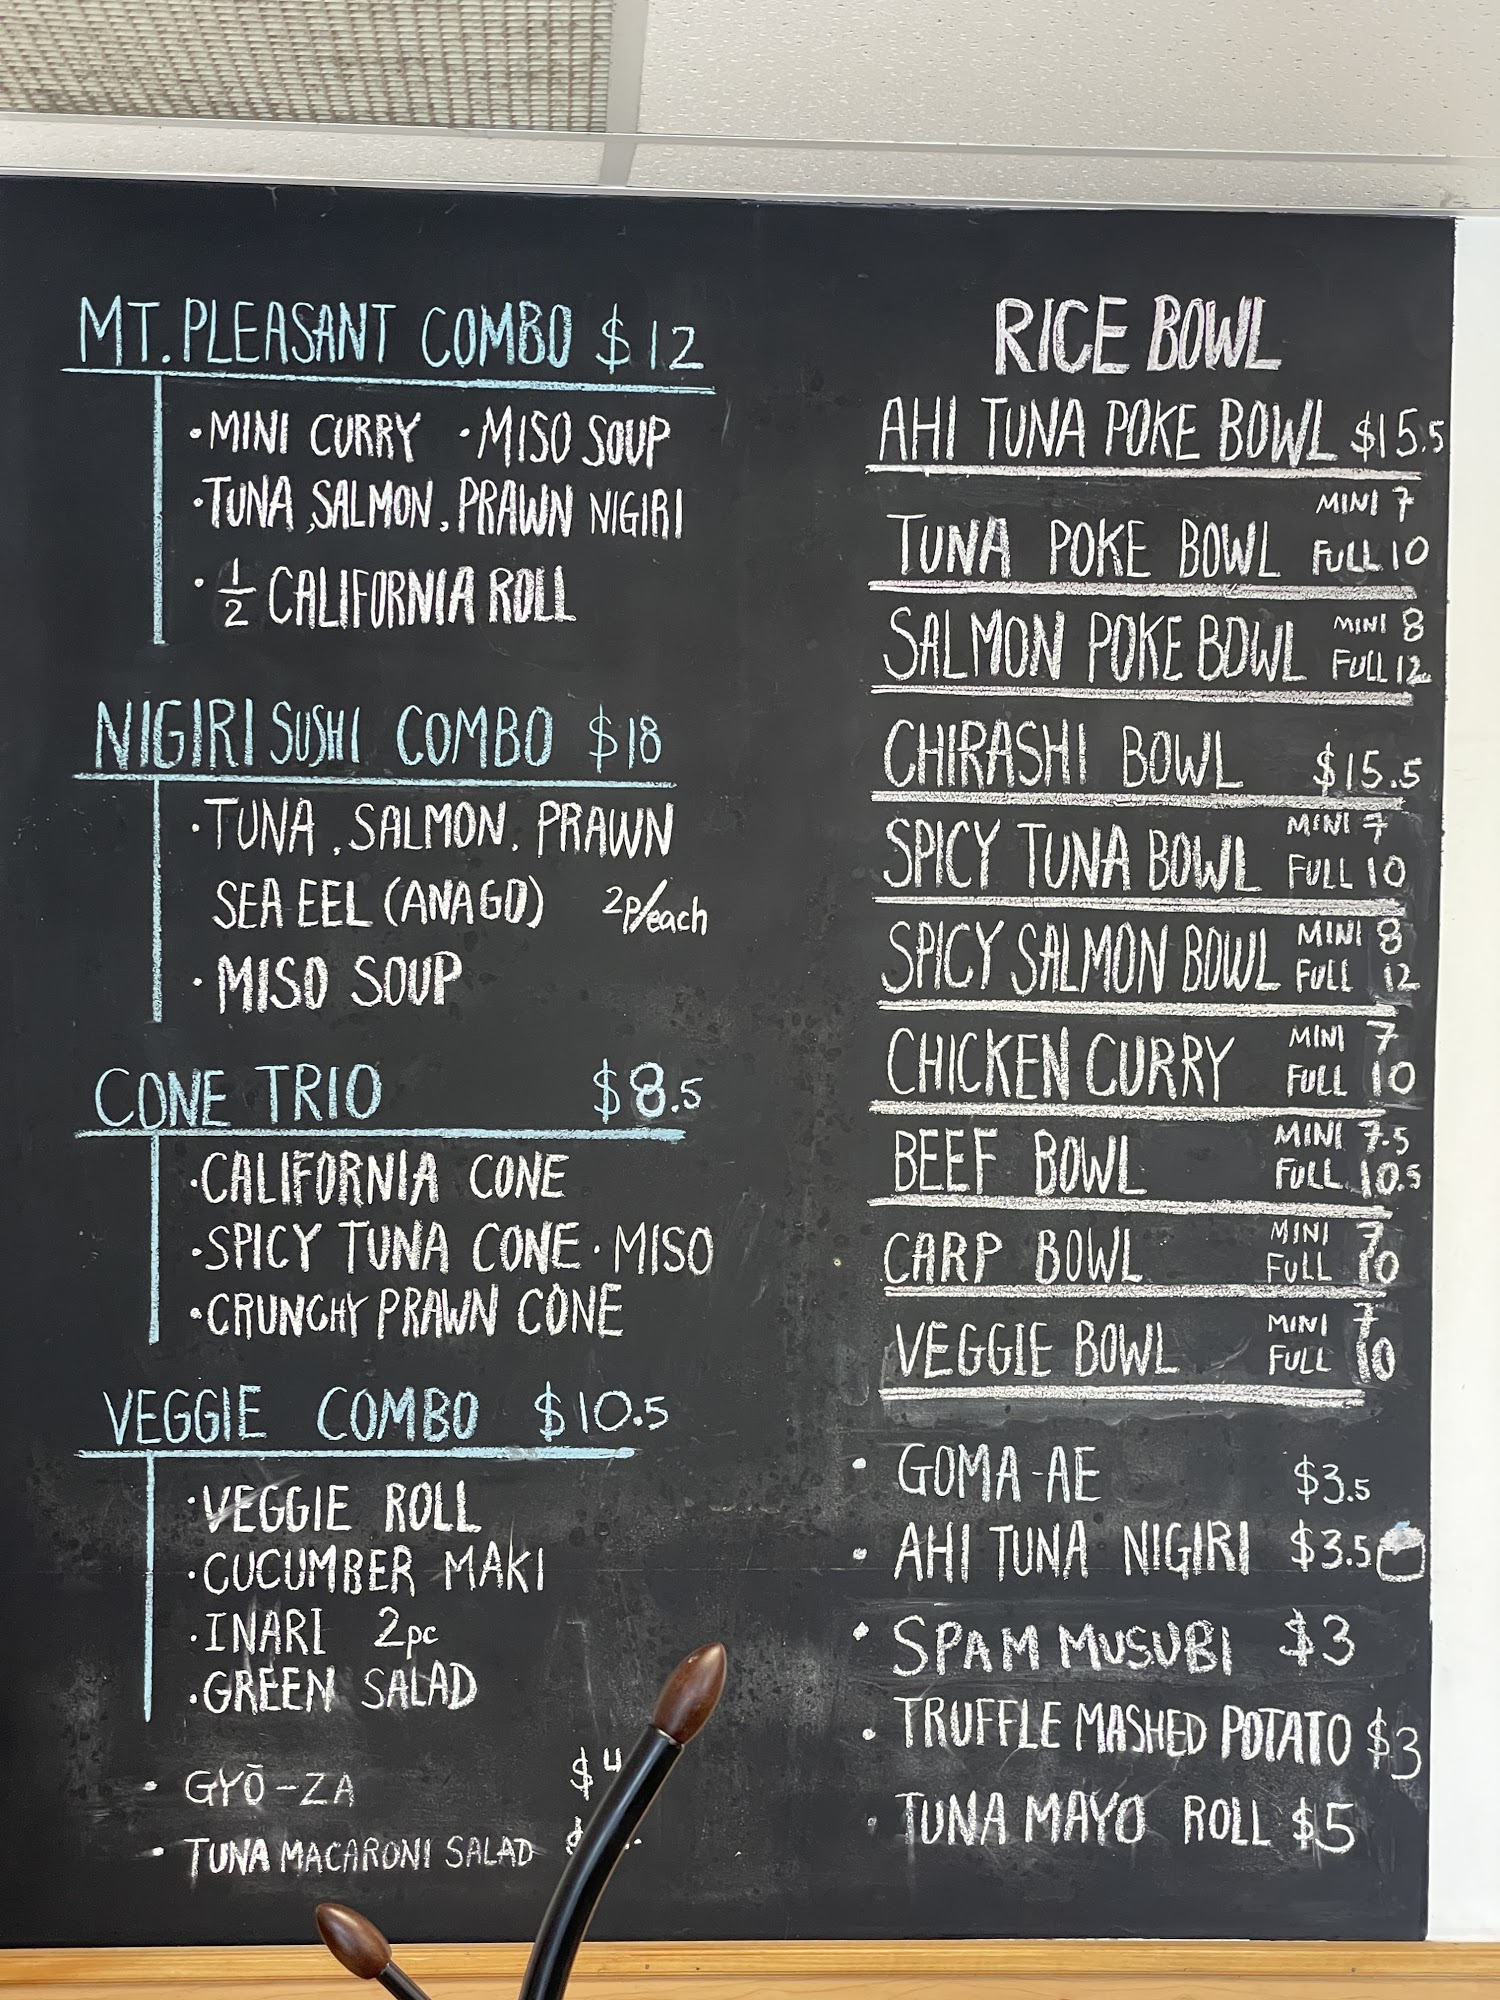 MT. PLEASANT COMBO $12
• MINI CURRY • MISO SOUP
• TUNA, SALMON, PRAWN NIGIRI
• 1/2 CALIFORNIA ROLL
NIGIRI SUSHI COMBO $18
• TUNA, SALMON, PRAWN
SEA EEL (ANAGO) 2p/each
• MISO SOUP
CONE TRIO $8.5
• CALIFORNIA CONE
• SPICY TUNA CONE • MISO
• CRUNCHY PRAWN CONE
VEGGIE COMBO $10.5
• VEGGIE ROLL
• CUCUMBER MAKI
• INARI 2pc
• GREEN SALAD
• GYŌ-ZA
• TUNA MACARONI SALAD
RICE BOWL
AHI TUNA POKE BOWL $15.5
TUNA POKE BOWL MINI 7
FULL 10
SALMON POKE BOWL MINI 8
FULL 12
CHIRASHI BOWL $15.5
SPICY TUNA BOWL MINI 7
FULL 10
SPICY SALMON BOWL MINI 8
FULL 12
CHICKEN CURRY MINI 7
FULL 10
BEEF BOWL MINI 7.5
FULL 10.5
CARP BOWL MINI 7
FULL 10
VEGGIE BOWL MINI 7
FULL 10
• GOMA-AE $3.5
• AHI TUNA NIGIRI $3.5
• SPAM MUSUBI $3
• TRUFFLE MASHED POTATO $3
• TUNA MAYO ROLL $5